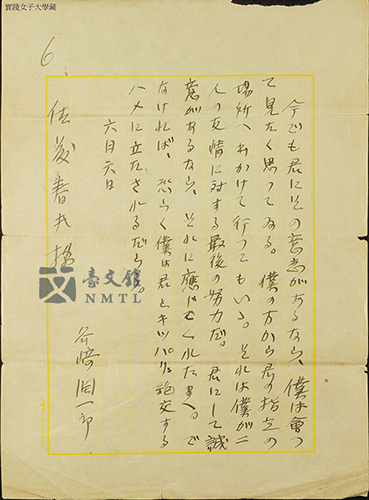 實踐女子大學藏
6
今でも君にその意志があるなら、僕は會つ
て見たく思つてゐる。僕の方から君の指定の
場所へ出かけて行つてもいゝ。それは僕が二
人の友情に対する最後の努力だ。君にして誠
意があるなら、それに應じてくれたまへ。で
なければ、恐らく僕は君とキッパリ絶交する
ハメに立たされるだらう。
六月六日
谷崎潤一郎
佐藤春夫様
臺文館
NMTL